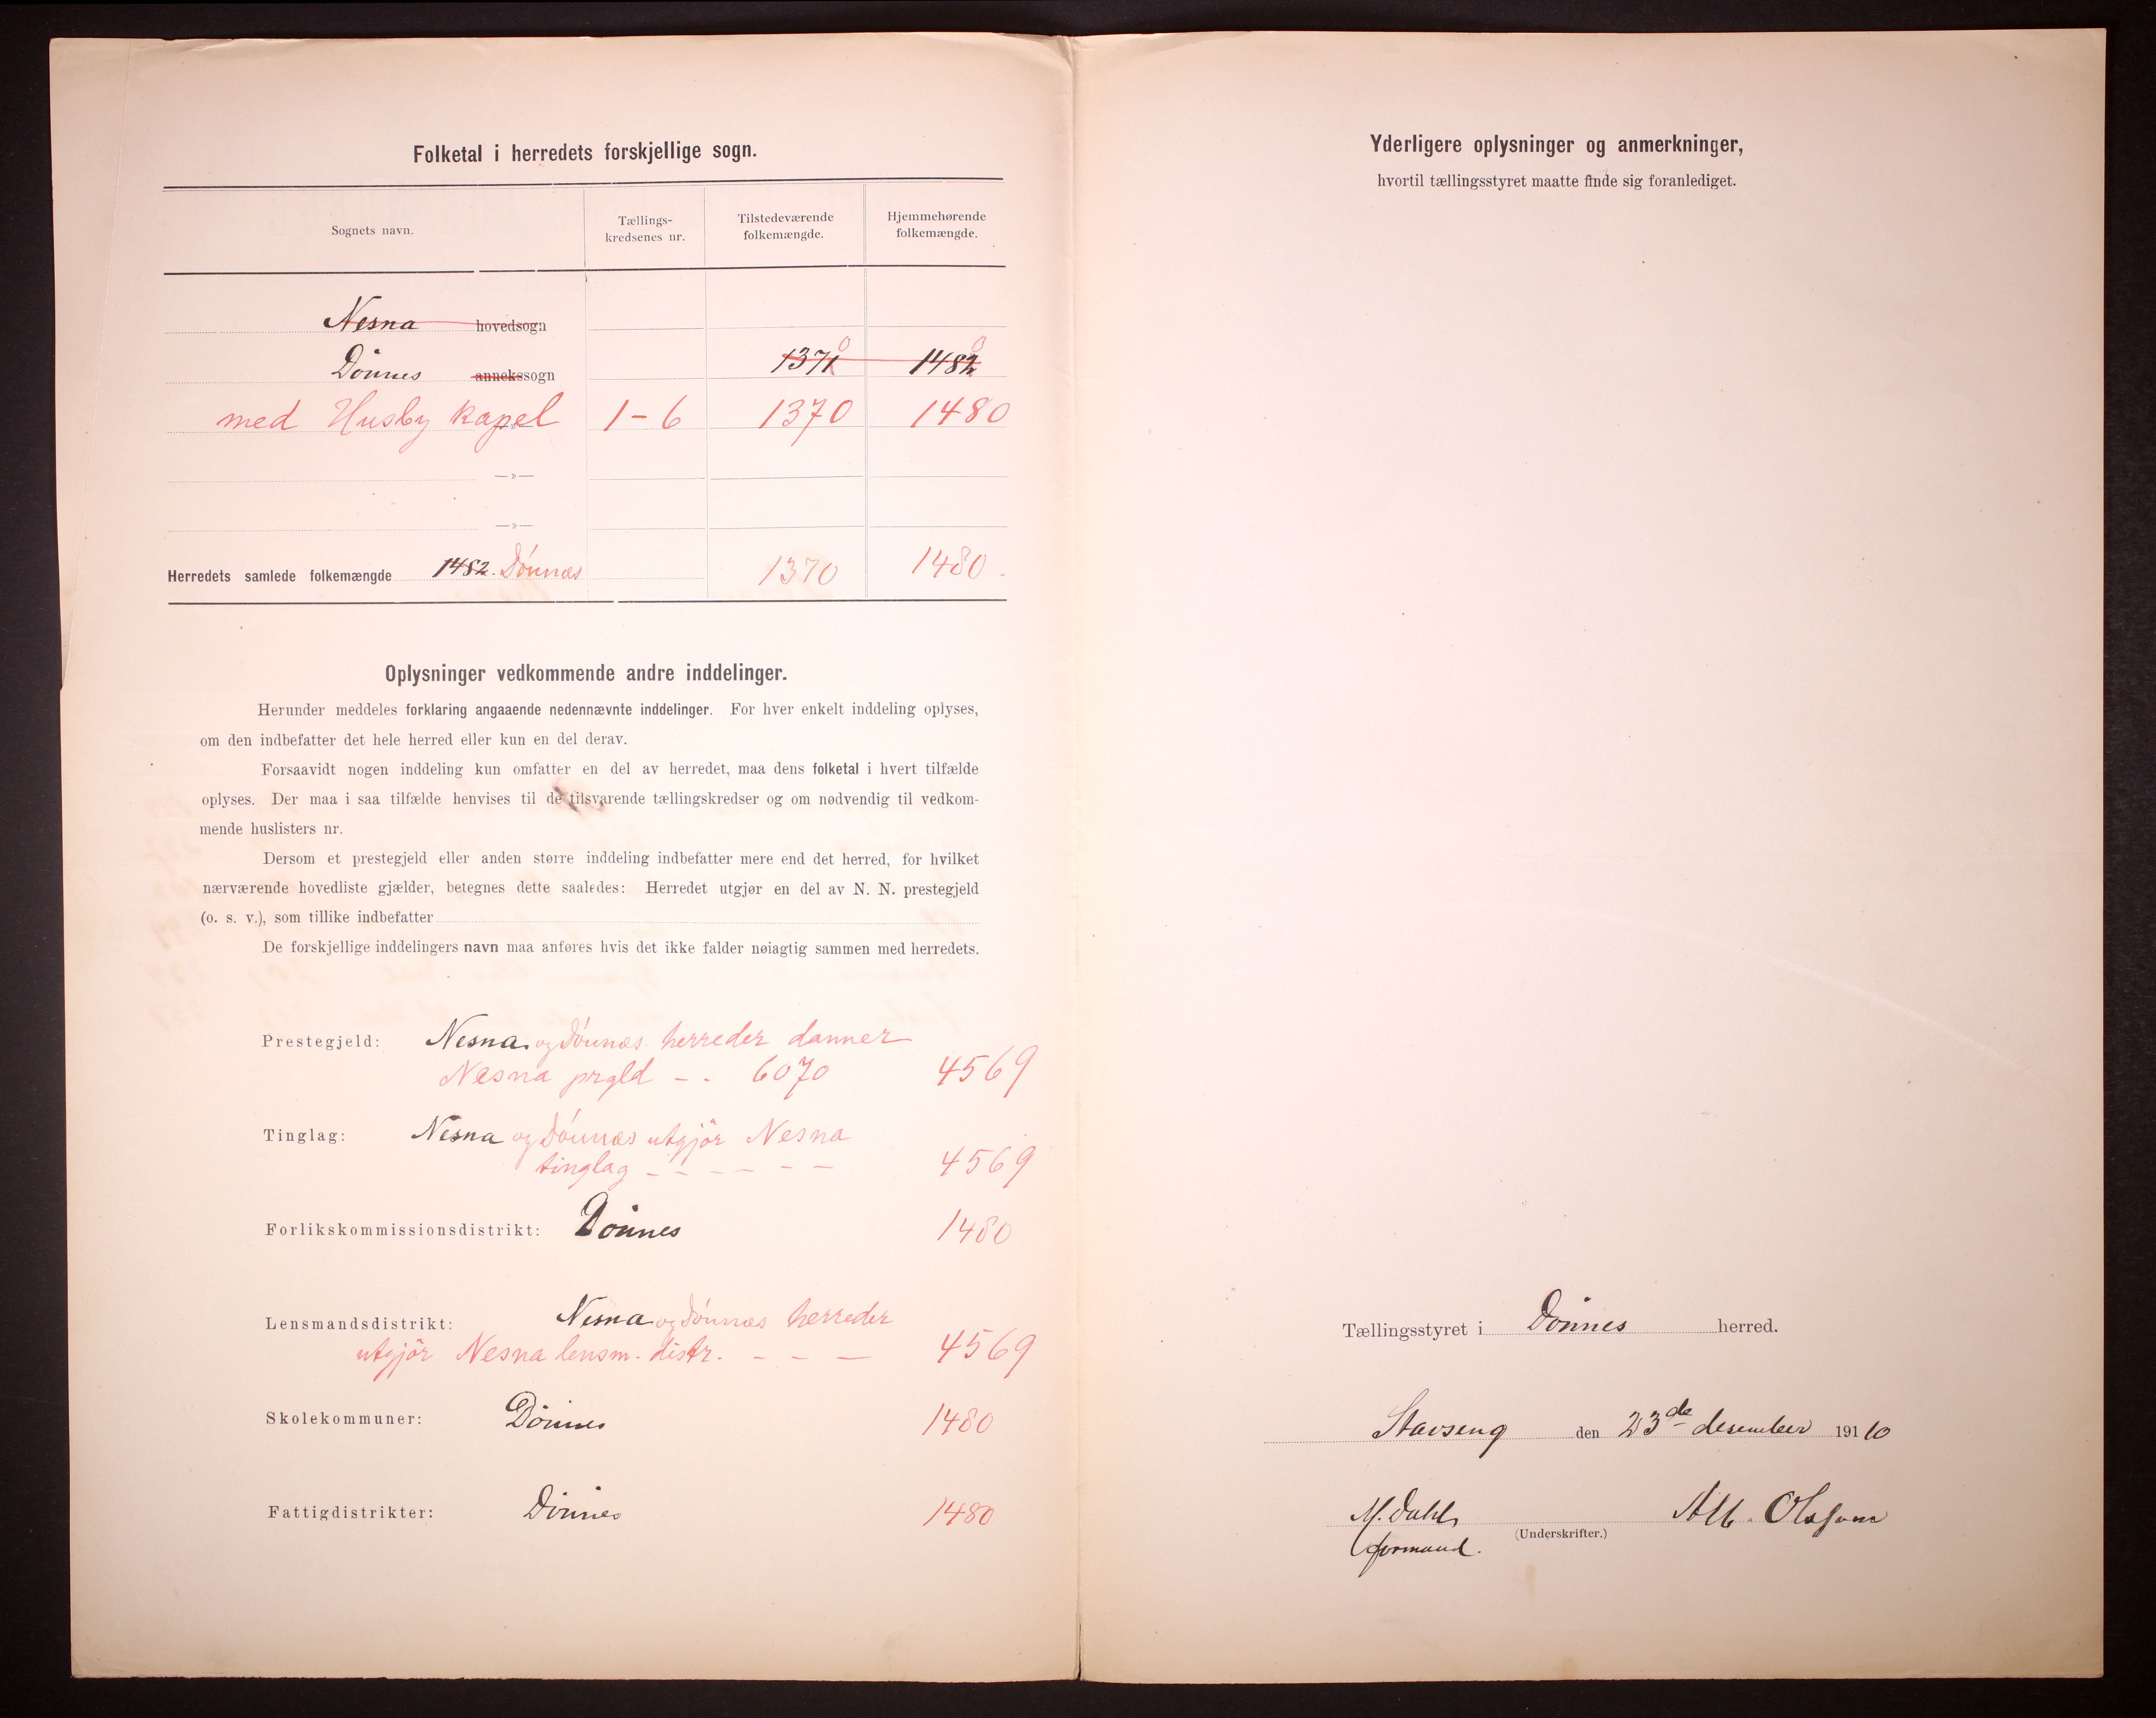 Folketal i herredets forskjellige sogn.
Sognets navn.
Tællings-
kredsenes nr.
Tilstedeværende
folkemængde.
Hjemmehørende
folkemængde.
Nesna hovedsogn
Dönnes annekssogn 1371 0 1482 0
med Husby kapel 1-6 1370 1480
—»—
—»—
Herredets samlede folkemængde 1482. Dönnæs 1370 1480.
Oplysninger vedkommende andre inddelinger.
Herunder meddeles forklaring angaaende nedennævnte inddelinger. For hver enkelt inddeling oplyses,
om den indbefatter det hele herred eller kun en del derav.
Forsaavidt nogen inddeling kun omfatter en del av herredet, maa dens folketal i hvert tilfælde
oplyses. Der maa i saa tilfælde henvises til de tilsvarende tællingskredser og om nødvendig til vedkom-
mende huslisters nr.
Dersom et prestegjeld eller anden større inddeling indbefatter mere end det herred, for hvilket
nærværende hovedliste gjælder, betegnes dette saaledes: Herredet utgjør en del av N. N. prestegjeld
(o. s. v.), som tillike indbefatter
De forskjellige inddelingers navn maa anføres hvis det ikke falder nøiagtig sammen med herredets.
Prestegjeld: Nesna. og Dönnæs herreder danner
Nesna prgld - . 6070 4569
Tinglag: Nesna og Dönnæs utgjör Nesna
tinglag - - - - - - 4569
Forlikskommissionsdistrikt: Dönnes 1480
Lensmandsdistrikt: Nesna og Dönnæs herreder
utgjör Nesna lensm. distr. - - - 4569
Skolekommuner: Dönnes 1480
Fattigdistrikter: Dönnes 1480
Yderligere oplysninger og anmerkninger,
hvortil tællingsstyret maatte finde sig foranlediget.
Tællingsstyret i Dönnes herred.
Stavseng den 23de desember 19110
M. Dahl, Alb. Olufsen
(Underskrifter.)
formand.